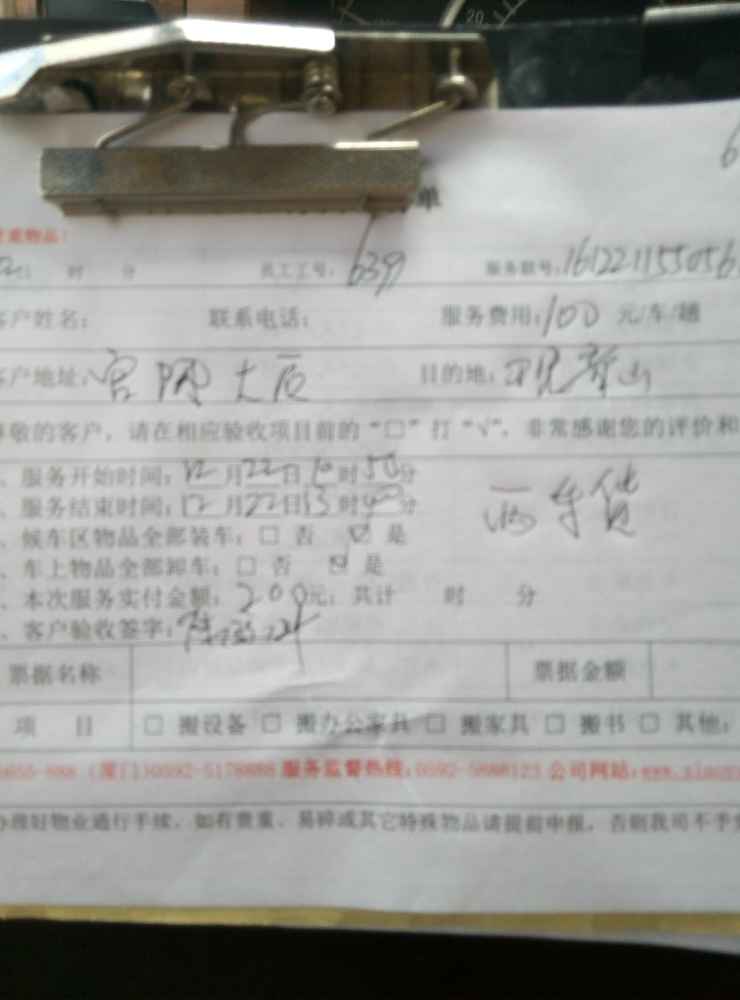 单
重物品：
时 分 员工工号：6399 服务联号：16122115505
客户姓名： 联系电话： 服务费用：100 元/车/趟
客户地址： 大厦 目的地：观音山
尊敬的客户，请在相应验收项目前的“□”打“√”，非常感谢您的评价和
、服务开始时间：12月22日10时50分
、服务结束时间：12月22日13时40分
两车货
、候车区物品全部装车：□ 否 ☑ 是
、车上物品全部卸车：□ 否 ☑ 是
、本次服务实付金额：200元；共计 时 分
、客户验收签字：
票据名称 票据金额
项 目 □ 搬设备 □ 搬办公家具 □ 搬家具 □ 搬书 □ 其他：
(厦门)0592-5178888 服务监督热线：0592-5888123 公司网站：
办理好物业通行手续，如有贵重、易碎或其它特殊物品请提前申报，否则我司不予